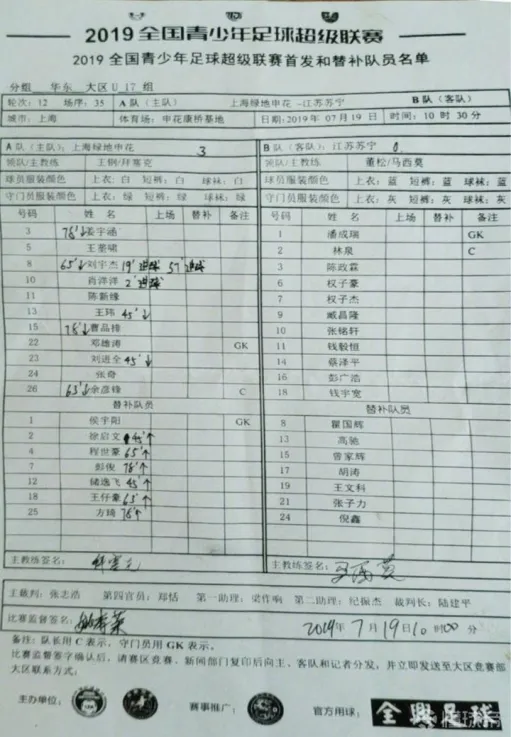 2019 全国青少年足球超级联赛
2019 全国青少年足球超级联赛首发和替补队员名单
分组 华东 大区 U 17 组
轮次：12 场序：35 A 队（主队） 上海绿地申花 -江苏苏宁 B 队（客队）
城市：上海 体育场：申花康桥基地 日期：2019 年 07 月 19 日 时间：10 时 30分
A 队（主队）：上海绿地申花 3 B 队（客队）：江苏苏宁 0
领队/主教练 王钢/拜塞克 领队/主教练 董松/马西莫
球员服装颜色 上衣：白 短裤：白 球袜：白 球员服装颜色 上衣：蓝 短裤：蓝 球袜：蓝
守门员服装颜色 上衣：绿 短裤：绿 球袜：绿 守门员服装颜色 上衣：灰 短裤：灰 球袜：灰
号码 姓 名 上场 替补 备注 号码 姓 名 上场 替补 备注
3 78'↓ 姜宇涵 1 潘成瑞 GK
5 2 林泉 C
8 65'↓ 刘宇杰 19' 进球 57' 进球 3 陈政霖
10 肖洋洋 2' 进球 6 权子豪
11 陈新缘 7 权子杰
13 王玮 45'↓ 9 臧昌隆
15 78'↓ 曹品排 10 张铭轩
22 邓雄涛 GK 11 钱毅恒
23 刘进全 45'↓ 14 蔡泽平
24 张奇 16 彭广浩
26 65'↓ 余彦锋 C 18 钱宇宽
替补队员 替补队员
1 侯宇阳 GK 8 瞿国辉
2 徐启文 45'↑ 13 高驰
4 程世豪 65'↑ 15 曾家辉
7 彭俊 78'↑ 17 胡涛
12 储逸飞 45'↑ 19 王文科
18 王仔豪 65'↑ 21 张子力
25 方琦 78'↑ 24 倪鑫
主教练签名： 主教练签名：
主裁判：张志浩 第四官员：郑恬 第一助理：梁作响 第二助理：纪振杰 裁判长：陆建平
比赛监督签名： 2019年 7 月 19 日 10 时 00 分
备注：队长用 C 表示，守门员用 GK 表示。
比赛监督签字确认后，请赛区竞赛、新闻部门复印后向主、客队和记者分发，并立即发送至大区竞赛部
大区联系方式：
主办单位： 赛事推广： 官方用球： 全興足球